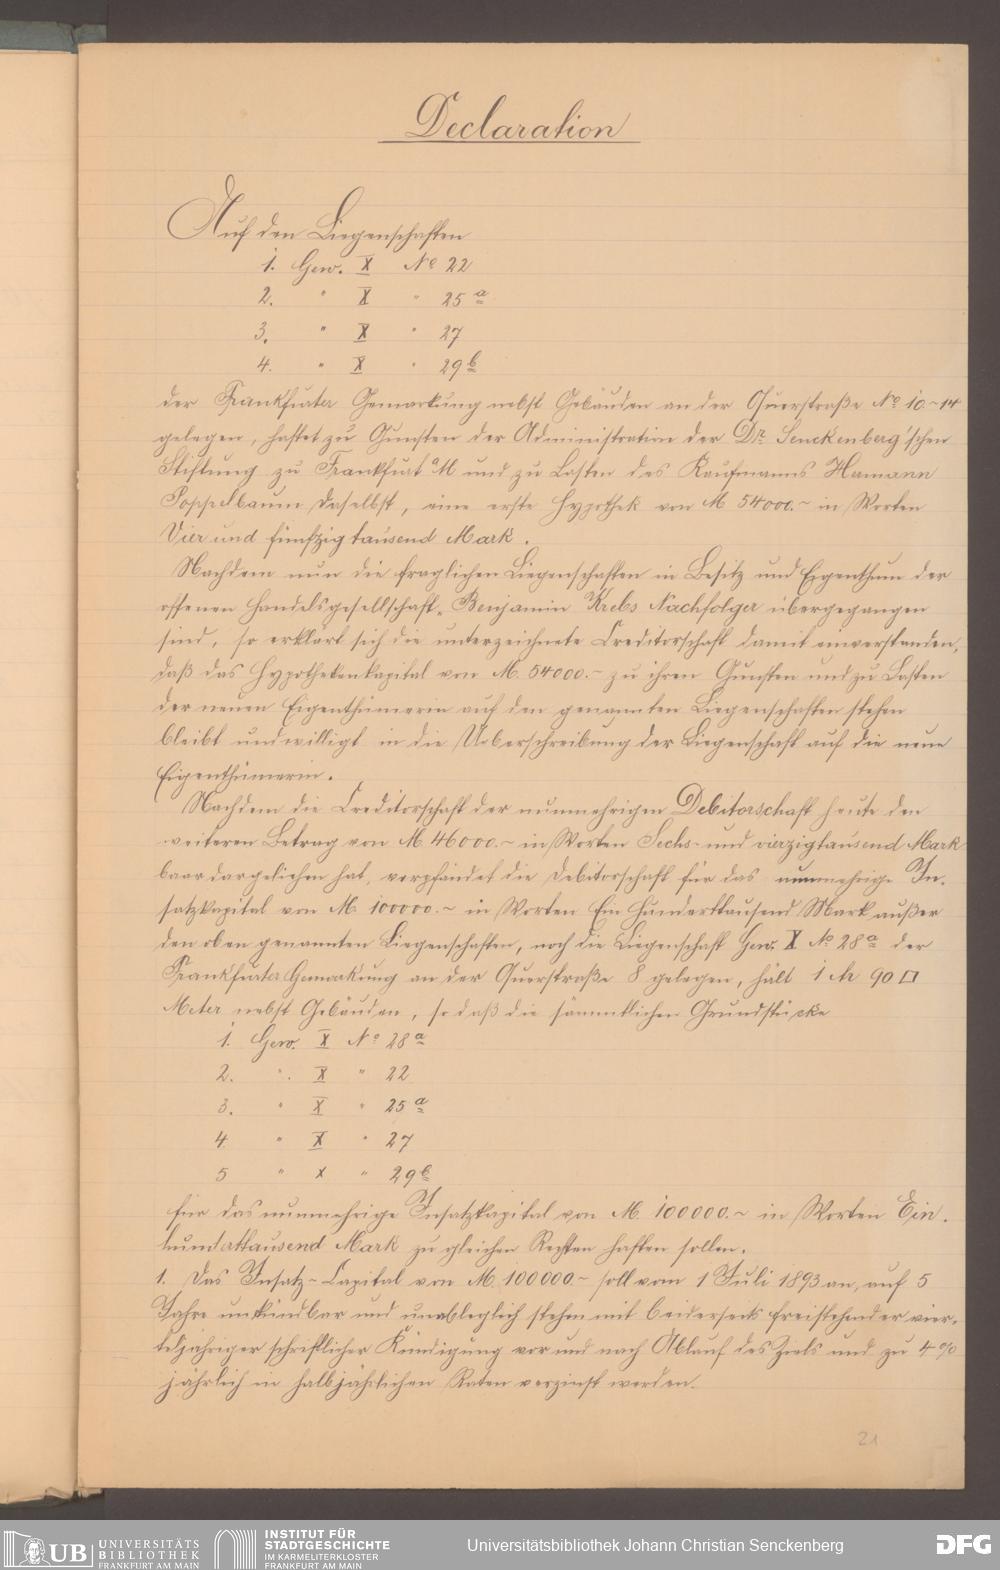 Declaration
Auf den Liegenschaften
1. Gew. X No 22
2. " X " 25 a
3. " X " 27
4. " X " 29 b
der Frankfurter Gemarkung nebst Gebäuden an der Querstraße No 10-14
gelegen, haftet zu Gunsten der Administration der Dr. Senckenberg'schen
Stiftung zu Frankfurt a/M und zu Lasten des Kaufmanns Hermann
Poppelbaum daselbst, eine erste Hypothek von M 54000.~ in Worten
Vier und fünfzig tausend Mark.
Nachdem nun die fraglichen Liegenschaften in Besitz und Eigenthum der
offenen Handelsgesellschaft „Benjamin Krebs Nachfolger übergegangen
sind, so erklärt sich die unterzeichnete Creditorschaft damit einverstanden,
daß das Hypothekenkapital von M. 54000.~ zu ihren Gunsten und zu Lasten
der neuen Eigenthümerin auf den genannten Liegenschaften stehen
bleibt und willigt in die Ueberschreibung der Liegenschaft auf die neue
Eigenthümerin.
Nachdem die Creditorschaft der nunmehrigen Debitorschaft heute den
weiteren Betrag von M. 46000.~ in Worten Sechs- und vierzigtausend Mark
baar dargeliehen hat, verpfändet die Debitorschaft für das nunmehrige In-
satzkapital von M. 100000.~ in Worten Ein Hunderttausend Mark außer
den oben genannten Liegenschaften, noch die Liegenschaft Gew. X No 28 a der
Frankfurter Gemarkung an der Querstraße 8 gelegen, hält 1 Ar 90 □
Meter nebst Gebäuden, so daß die sämmtlichen Grundstücke
1. Gew. X No 28 a
2. " X " 22
3. " X " 25 a
4 " X " 27
5 " X " 29 b
für das nunmehrige Insatzkapital von M. 100000.~ in Worten Ein-
hunderttausend Mark zu gleichen Rechten haften sollen.
1. Das Insatz-Capital von M. 100000.~ soll vom 1 Juli 1893 an, auf 5
Jahre unkündbar und unableglich stehen mit beiderseits freistehender vier-
teljähriger schriftlicher Kündigung vor und nach Ablauf des Ziels und zu 4 %
jährlich in halbjährlichen Raten verzinst werden.
21
UB UNIVERSITÄTS
BIBLIOTHEK
FRANKFURT AM MAIN
INSTITUT FÜR
STADTGESCHICHTE
IM KARMELITERKLOSTER
FRANKFURT AM MAIN
Universitätsbibliothek Johann Christian Senckenberg
DFG